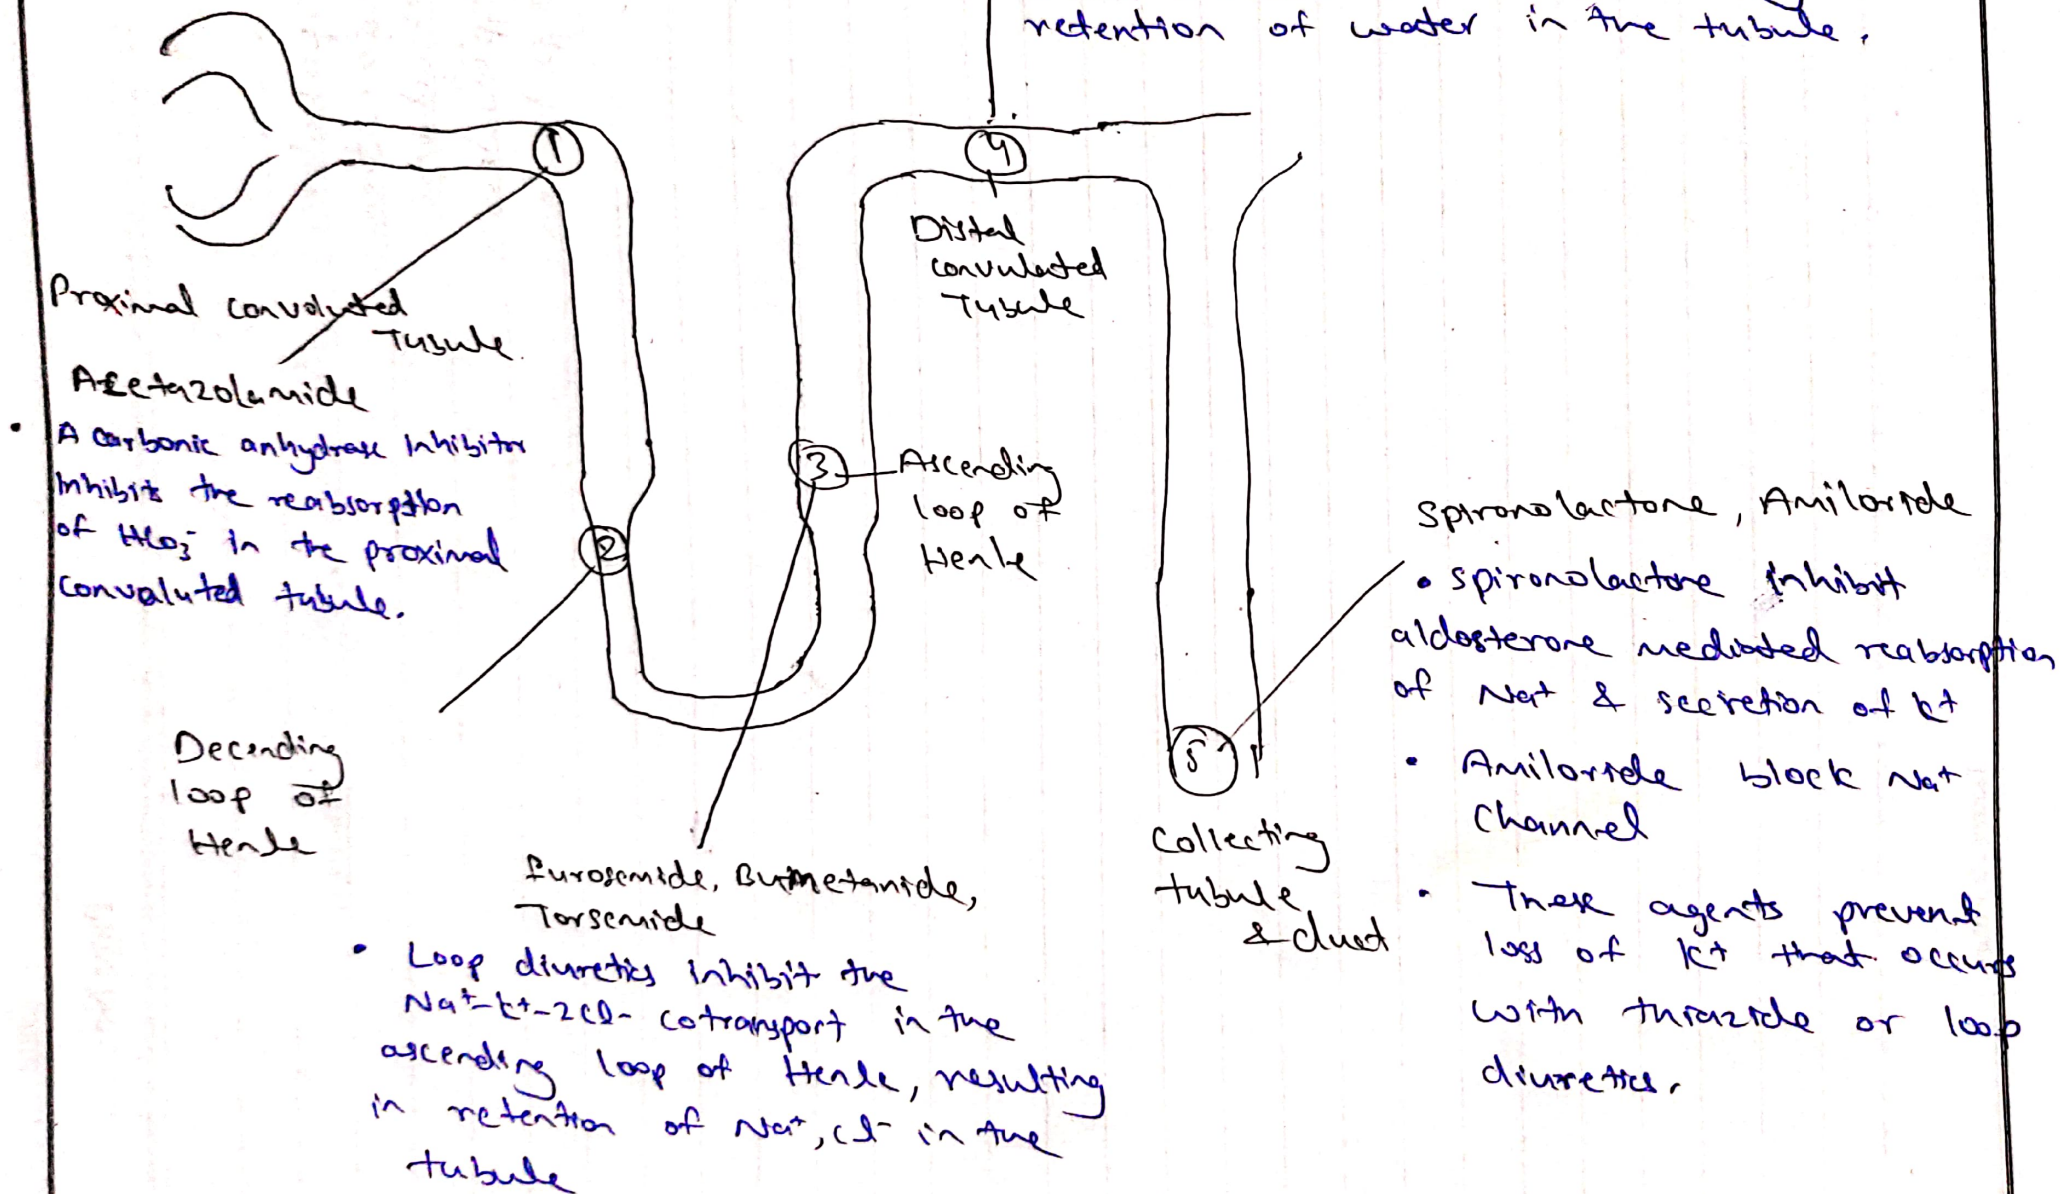 retention of water in the tubule.
1
4
Distal
convulated
Tubule
Proximal convoluted
Tubule.
Acetazolamide
• A carbonic anhydrase Inhibitor
Inhibits the reabsorption
of HCO3- in the proximal
convaluted tubule.
2
3
Ascending
loop of
Henle
Decending
loop of
Henle
furosemide, Bumetanide,
Torsemide
• Loop diuretics inhibit the
Na+-k+-2Cl- cotransport in the
ascending loop of Henle, resulting
in retention of Na+, Cl- in the
tubule
5
Collecting
tubule
& duct
Spironolactone, Amiloride
• Spironolactone inhibit
aldosterone mediated reabsorption
of Na+ & secretion of k+
• Amiloride block Na+
Channel
• These agents prevent
loss of K+ that occurs
with thiazide or loop
diuretics.